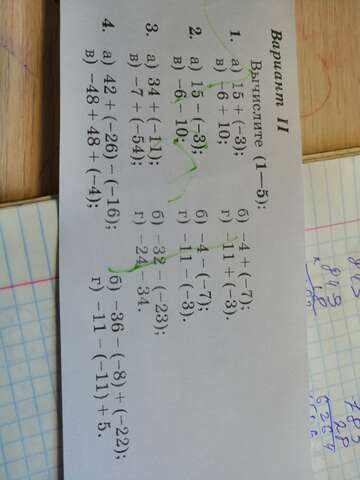 Вариант II
Вычислите (1—5):
1. а) 15 + (−3); б) −4 + (−7);
в) −6 + 10; г) 11 + (−3).
2. а) 15 − (−3); б) −4 − (−7);
в) −6 − 10; г) −11 − (−3).
3. а) 34 + (−11); б) −32 − (−23);
в) −7 + (−54); г) −24 − 34.
4. а) 42 + (−26) − (−16); б) −36 − (−8) + (−22);
в) −48 + 48 + (−4); г) −11 − (−11) + 5.
849